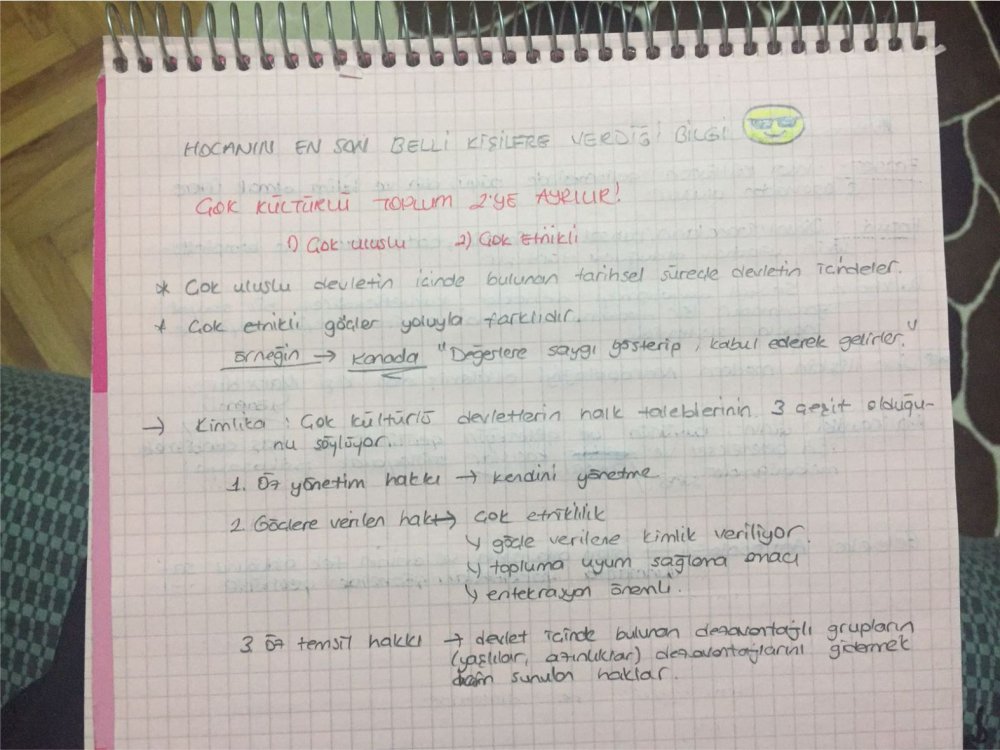 HOCANIN EN SON BELLİ KİŞİLERE VERDİĞİ BİLGİ
ÇOK KÜLTÜRLÜ TOPLUM 2'YE AYRILIR!
1) Çok uluslu 2) Çok Etnikli
* Çok uluslu devletin içinde bulunan tarihsel süreçle devletin içindeler.
* Çok etnikli göçler yoluyla farklıdır.
örneğin → Kanada "Değerlere saygı gösterip, kabul ederek gelirler."
→ Kimlika : Çok kültürlü devletlerin halk taleblerinin 3 çeşit olduğu-
nu söylüyor.
1. Öz yönetim hakkı → kendini yönetme
2. Göçlere verilen hak → çok etniklilik
↳ göçle verilene kimlik veriliyor.
↳ topluma uyum sağlama amacı
↳ entekrasyon önemli.
3. Öz temsil hakkı → devlet içinde bulunan dezavantajlı grupların
(yaşlılar, azınlıklar) dezavantajlarını gidermek
için sunulan haklar.